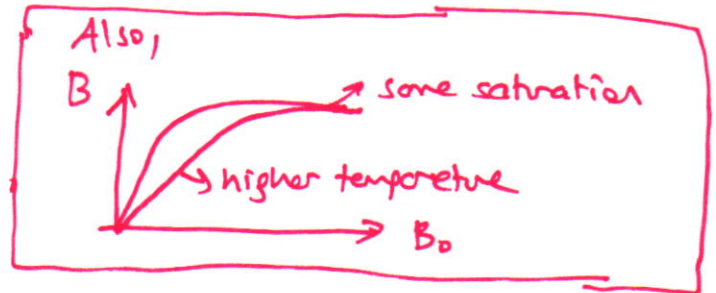 Also,
B
some saturation
higher temperature
B₀